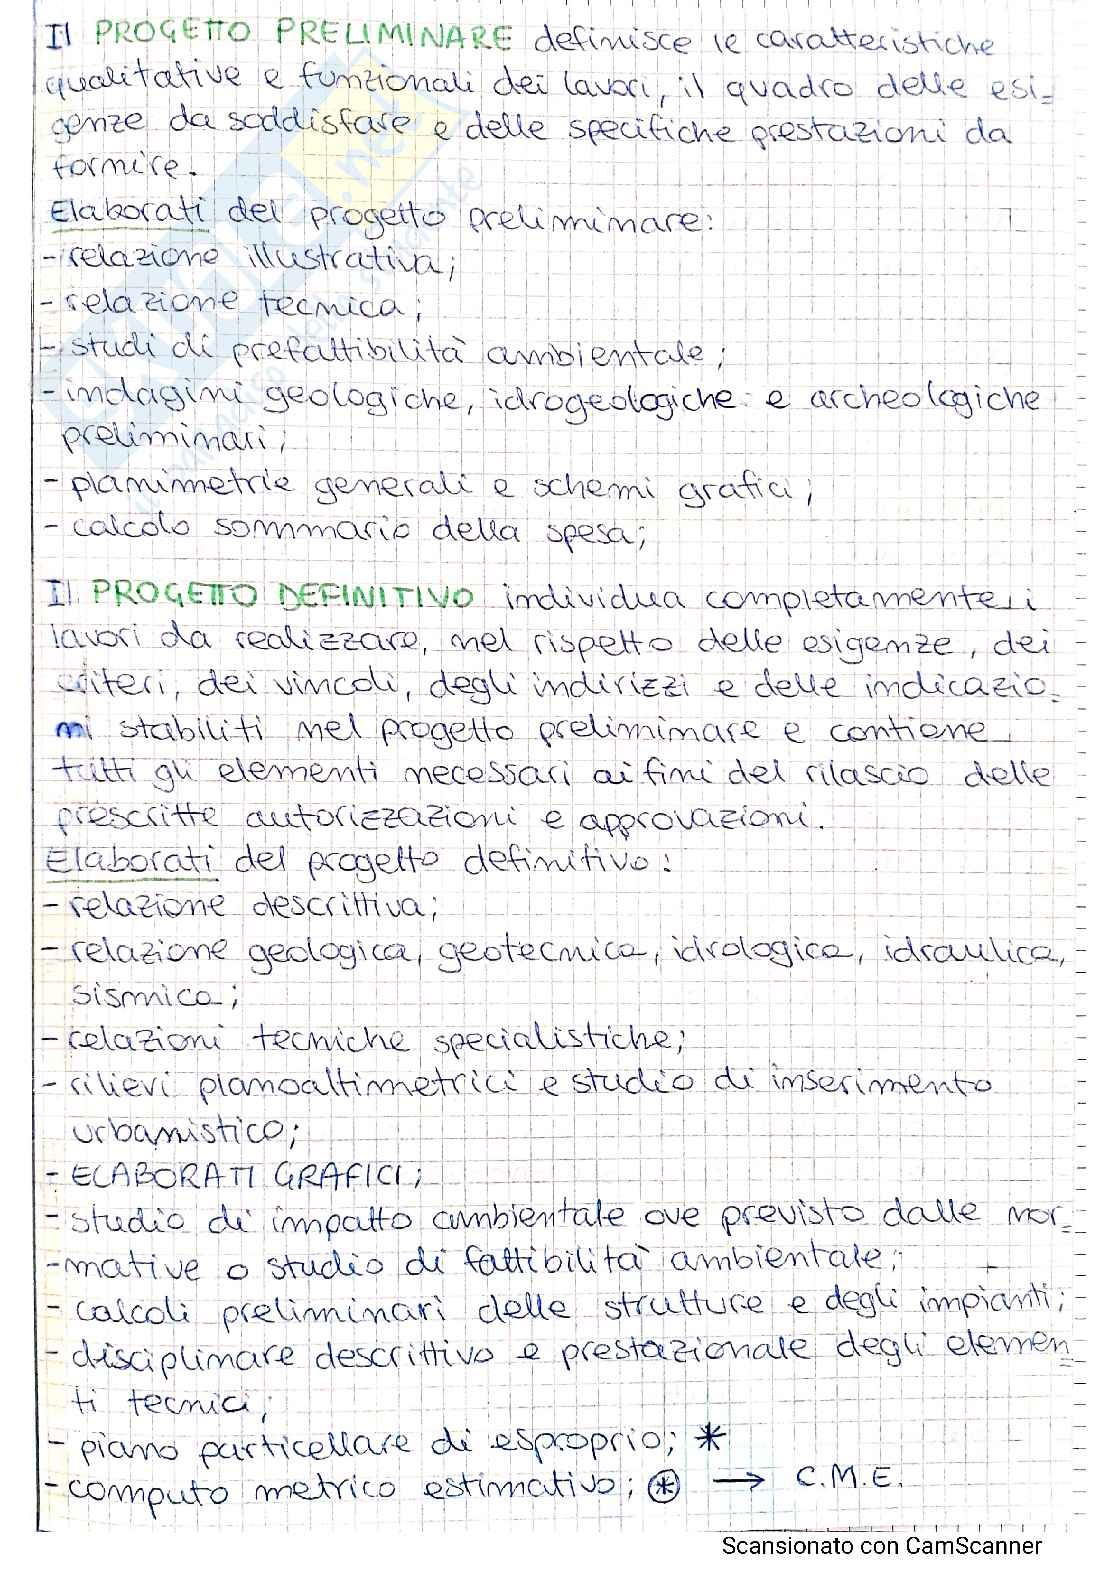 Il PROGETTO PRELIMINARE definisce le caratteristiche
qualitative e funzionali dei lavori, il quadro delle esi=
genze da soddisfare e delle specifiche prestazioni da
fornire.
Elaborati del progetto preliminare:
- relazione illustrativa;
- relazione tecnica;
- studi di prefattibilità ambientale;
- indagini geologiche, idrogeologiche e archeologiche
preliminari;
- planimetrie generali e schemi grafici;
- calcolo sommario della spesa;
Il PROGETTO DEFINITIVO individua completamente i
lavori da realizzare, nel rispetto delle esigenze, dei
criteri, dei vincoli, degli indirizzi e delle indicazio=
ni stabiliti nel progetto preliminare e contiene
tutti gli elementi necessari ai fini del rilascio delle
prescritte autorizzazioni e approvazioni.
Elaborati del progetto definitivo:
- relazione descrittiva;
- relazione geologica, geotecnica, idrologica, idraulica,
sismica;
- relazioni tecniche specialistiche;
- rilievi planoaltimetrici e studio di inserimento
urbanistico;
- ELABORATI GRAFICI;
- studio di impatto ambientale ove previsto dalle nor=
-mative o studio di fattibilità ambientale;
- calcoli preliminari delle strutture e degli impianti;
- disciplinare descrittivo e prestazionale degli elemen=
ti tecnici;
- piano particellare di esproprio; *
- computo metrico estimativo; ⊛ → C.M.E.
Scansionato con CamScanner